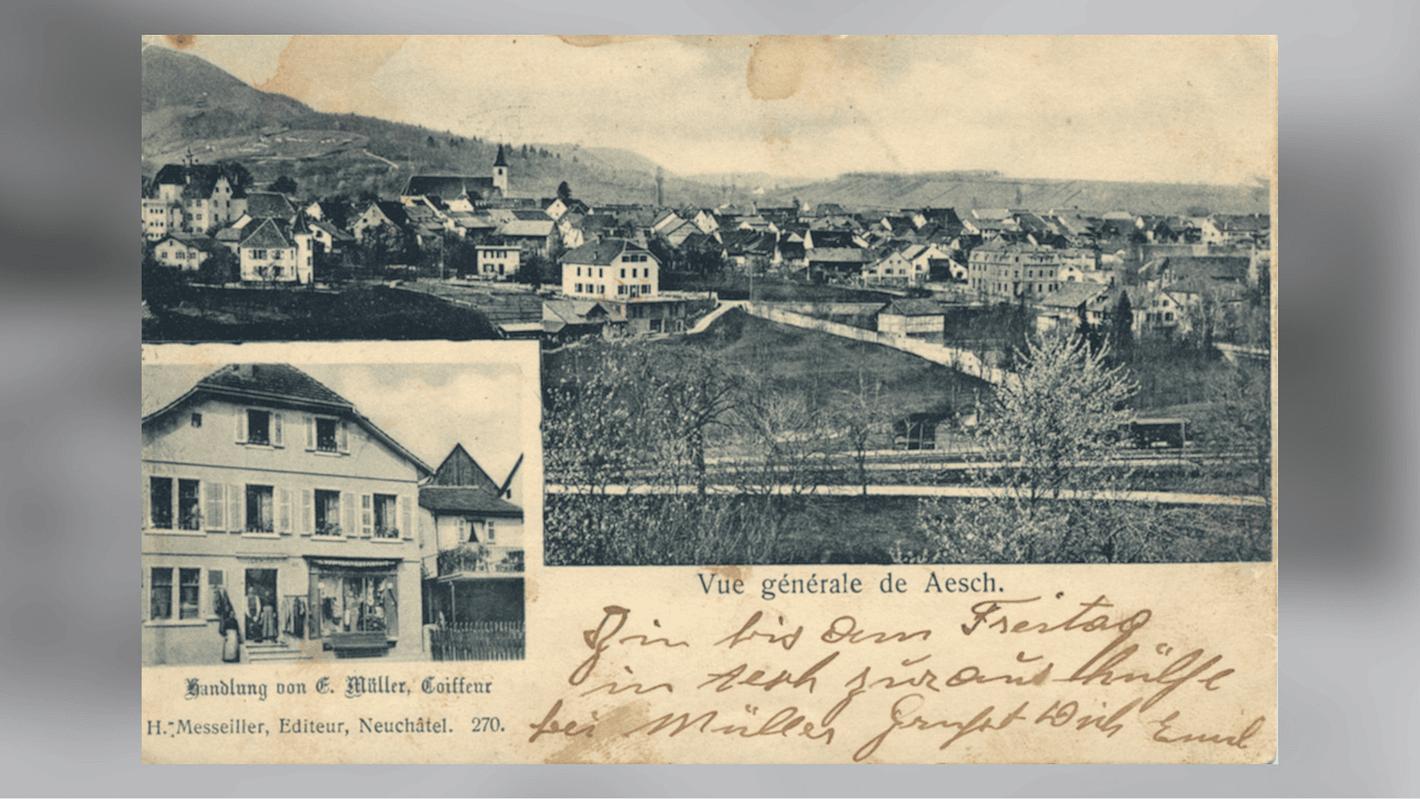 Vue générale de Aesch.
Bin bis dem Freitag
in zur aushülfe
bei Müller Grusst Dich Emil
Handlung von E. Müller, Coiffeur
H. Messeiller, Editeur, Neuchâtel. 270.